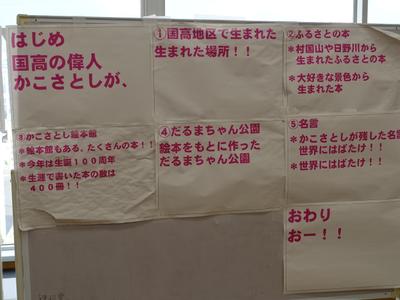 はじめ
国高の偉人
かこさとしが、
①国高地区で生まれた
生まれた場所！！
②ふるさとの本
＊村国山や日野川から
生まれたふるさとの本
＊大好きな景色から
生まれた本
③かこさとし絵本館
＊絵本もある、たくさんの本！！
＊今年は生誕１００周年
＊生涯で書いた本の数は
４００冊！！
④だるまちゃん公園
絵本をもとに作った
だるまちゃん公園
⑤名言
＊かこさとしが残した名言
世界にはばたけ！！
＊世界にはばたけ！！
おわり
おー！！